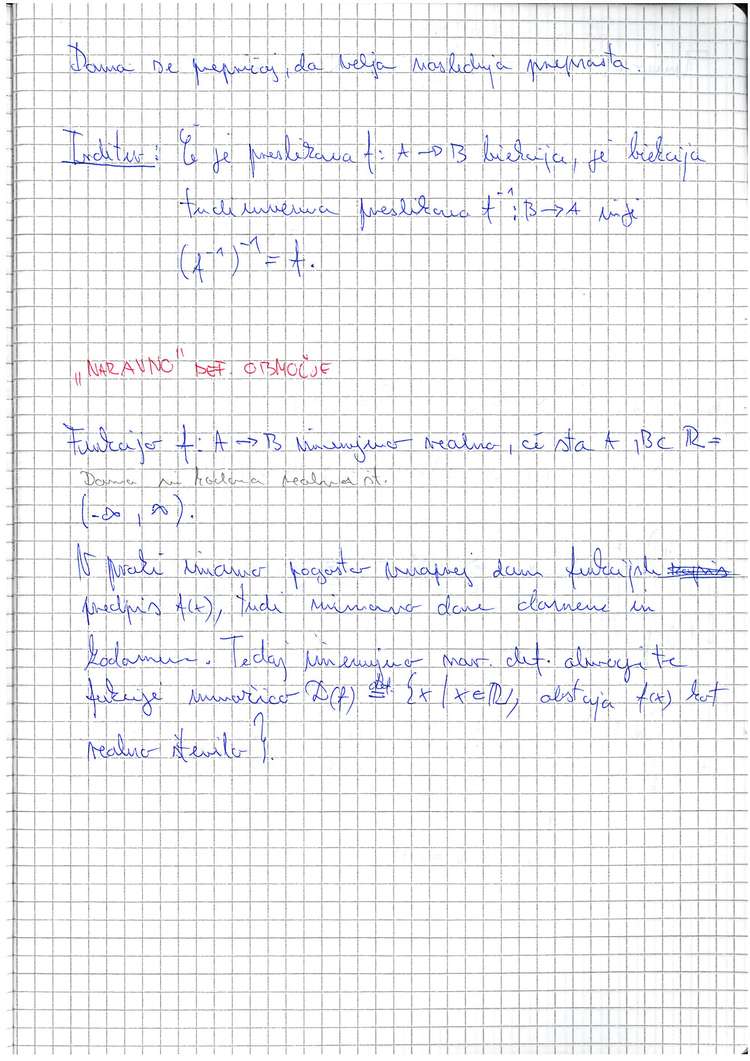 Doma se prepričaj, da velja naslednja preprosta.
Trditev: Če je preslikava f: A → B bijekcija, je bijekcija
tudi inverzna preslikava f⁻¹: B → A in je
(f⁻¹)⁻¹ = f.
„NARAVNO" DEF. OBMOČJE
Funkcijo f: A → B imenujemo realno, če sta A, B ⊂ ℝ =
Domena in kodomena realna št.
(-∞, ∞).
V praksi imamo pogosto vnaprej dan funkcijski
predpis f(x), tudi nimamo dane domene in
kodomene. Tedaj imenujemo nar. def. območje te
funkcije množico D(f) def= {x | x ∈ ℝ, obstaja f(x) kot
realno število}.